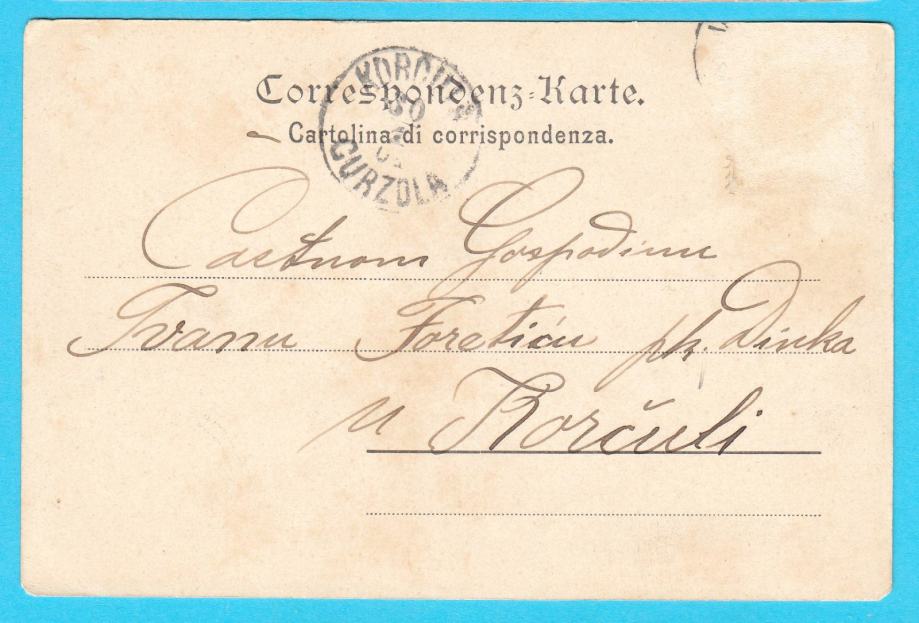 Correspondenz-Karte.
Cartolina di corrispondenza.
KORČULA
30
CURZOLA
Častnom Gospodinu
Ivanu Foretiću pk. Dinka
u Korčuli